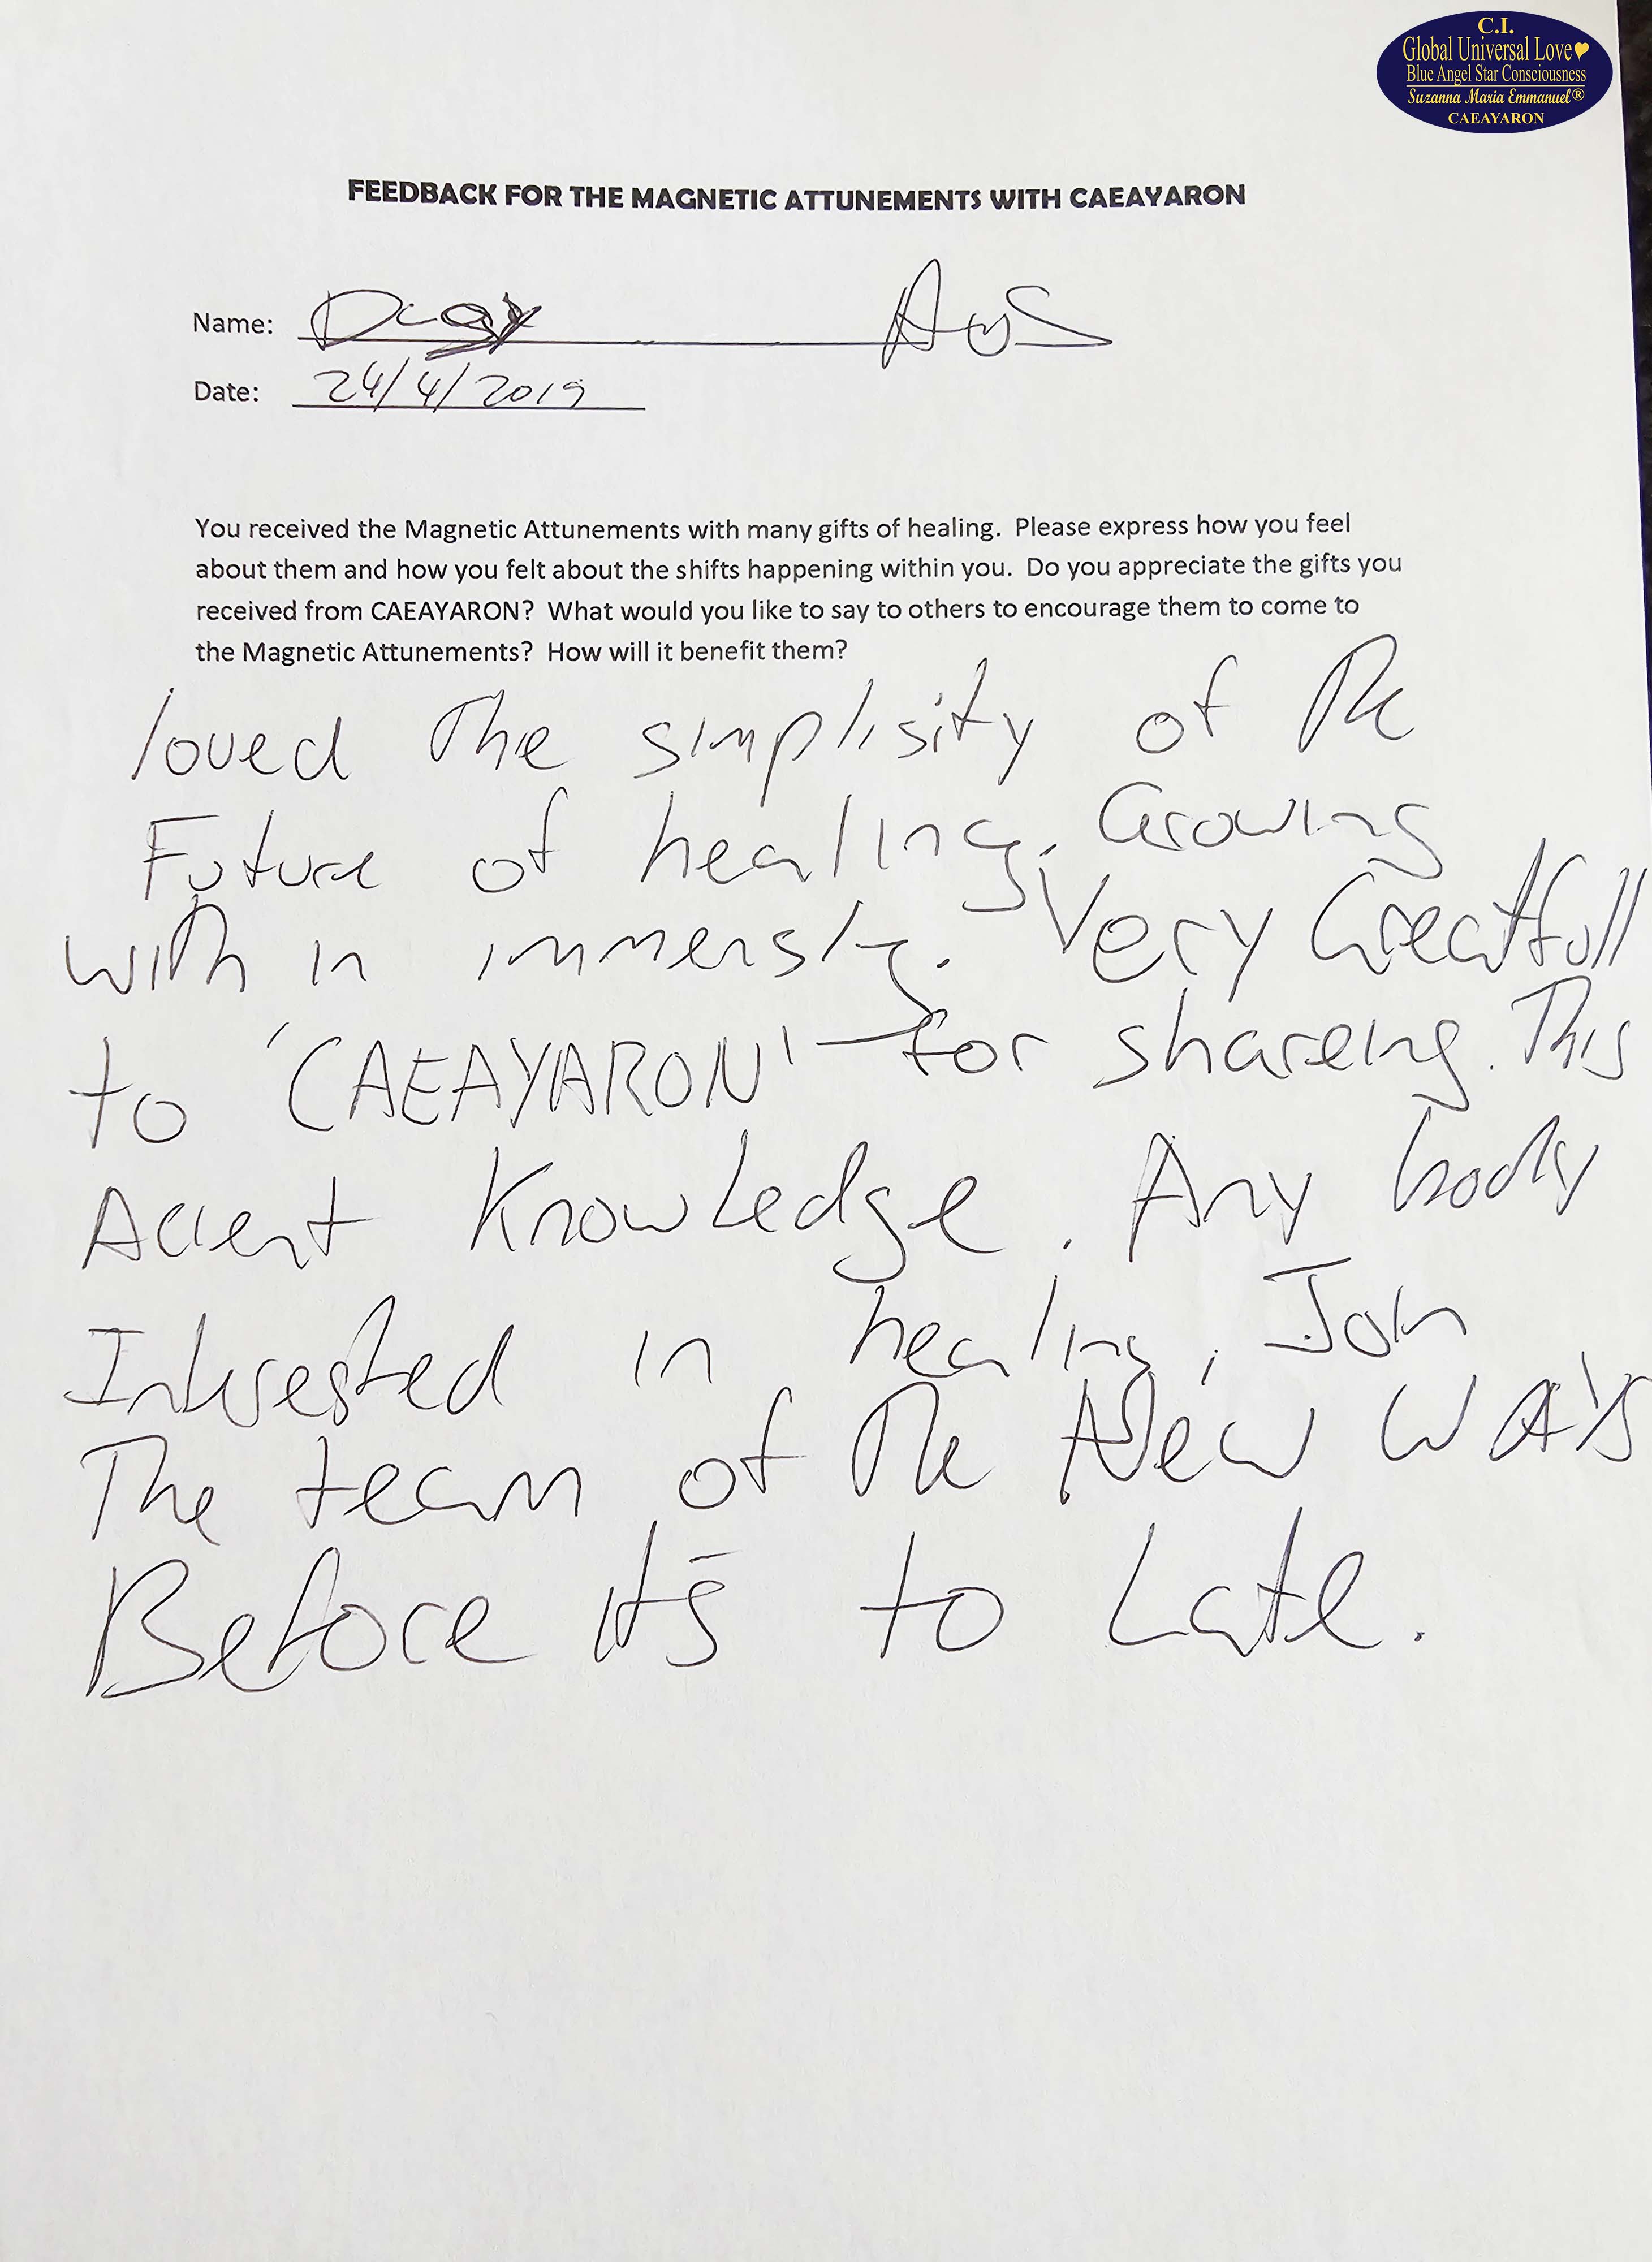 C.I.
Global Universal Love
Blue Angel Star Consciousness
Suzanna Maria Emmanuel®
CAEAYARON
FEEDBACK FOR THE MAGNETIC ATTUNEMENTS WITH CAEAYARON
Name:
Date: 24/4/2019
You received the Magnetic Attunements with many gifts of healing. Please express how you feel
about them and how you felt about the shifts happening within you. Do you appreciate the gifts you
received from CAEAYARON? What would you like to say to others to encourage them to come to
the Magnetic Attunements? How will it benefit them?
loved The simplisity of The
Future of healing. Growing
with in immensly. Very Greatfull
to 'CAEAYARON' for shareing. This
Acient Knowledge. Any body
Interested in healing, Join
The team of The New WAYS
Before it's to Late.